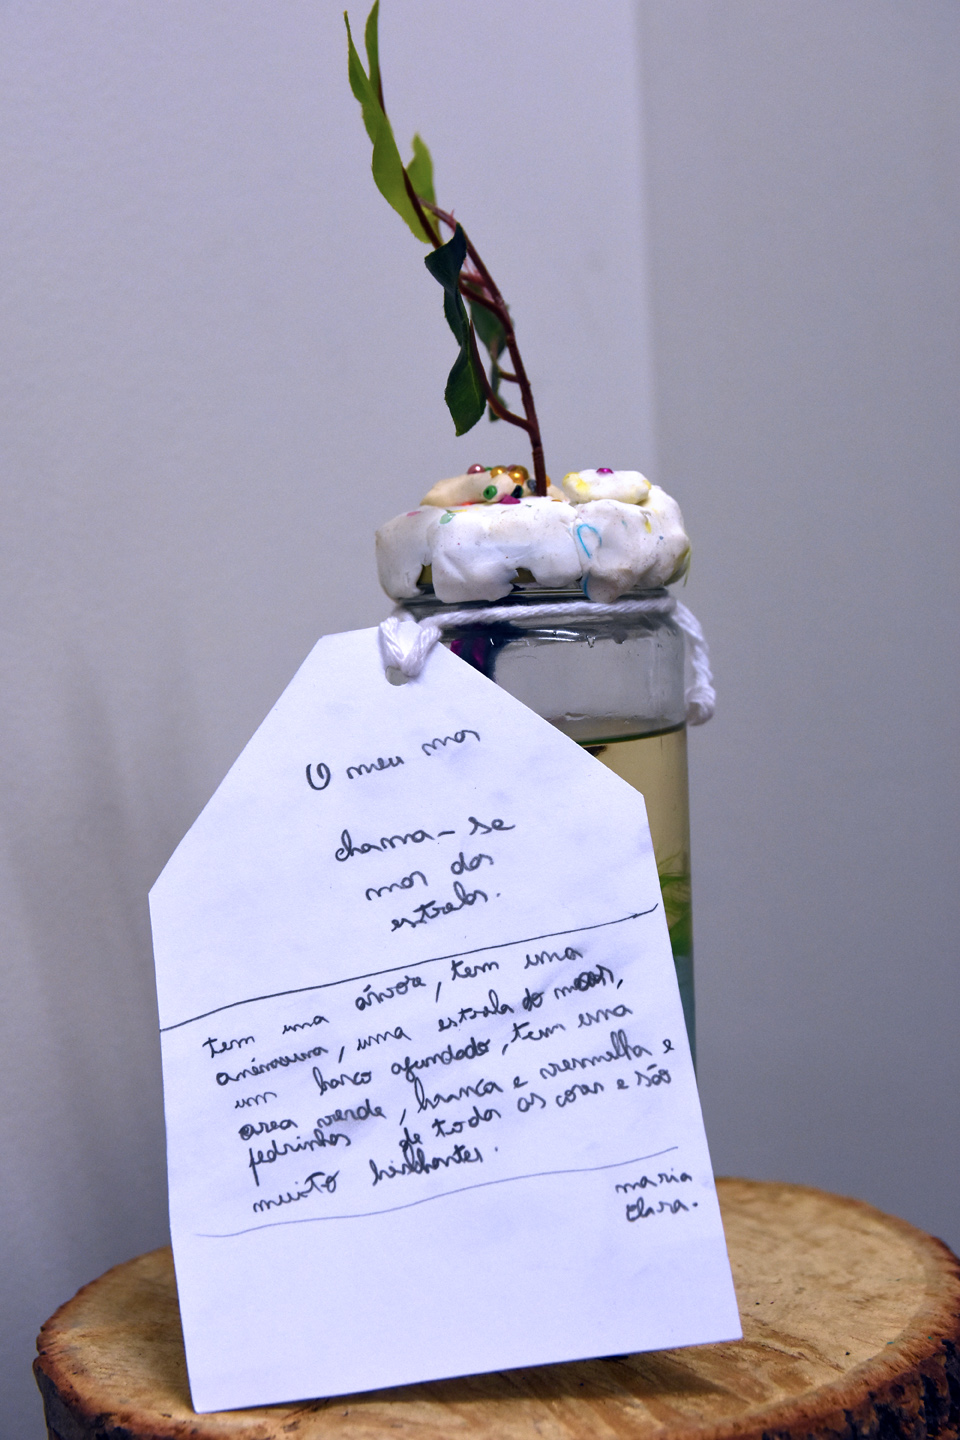 O meu mar
chama-se
mar das
estrelas.
tem uma árvore, tem uma
anémona, uma estrela do mar,
um barco afundado, tem uma
area verde, branca e vermelha e
pedrinhas de todas as cores e são
muito brilhantes.
maria
clara.